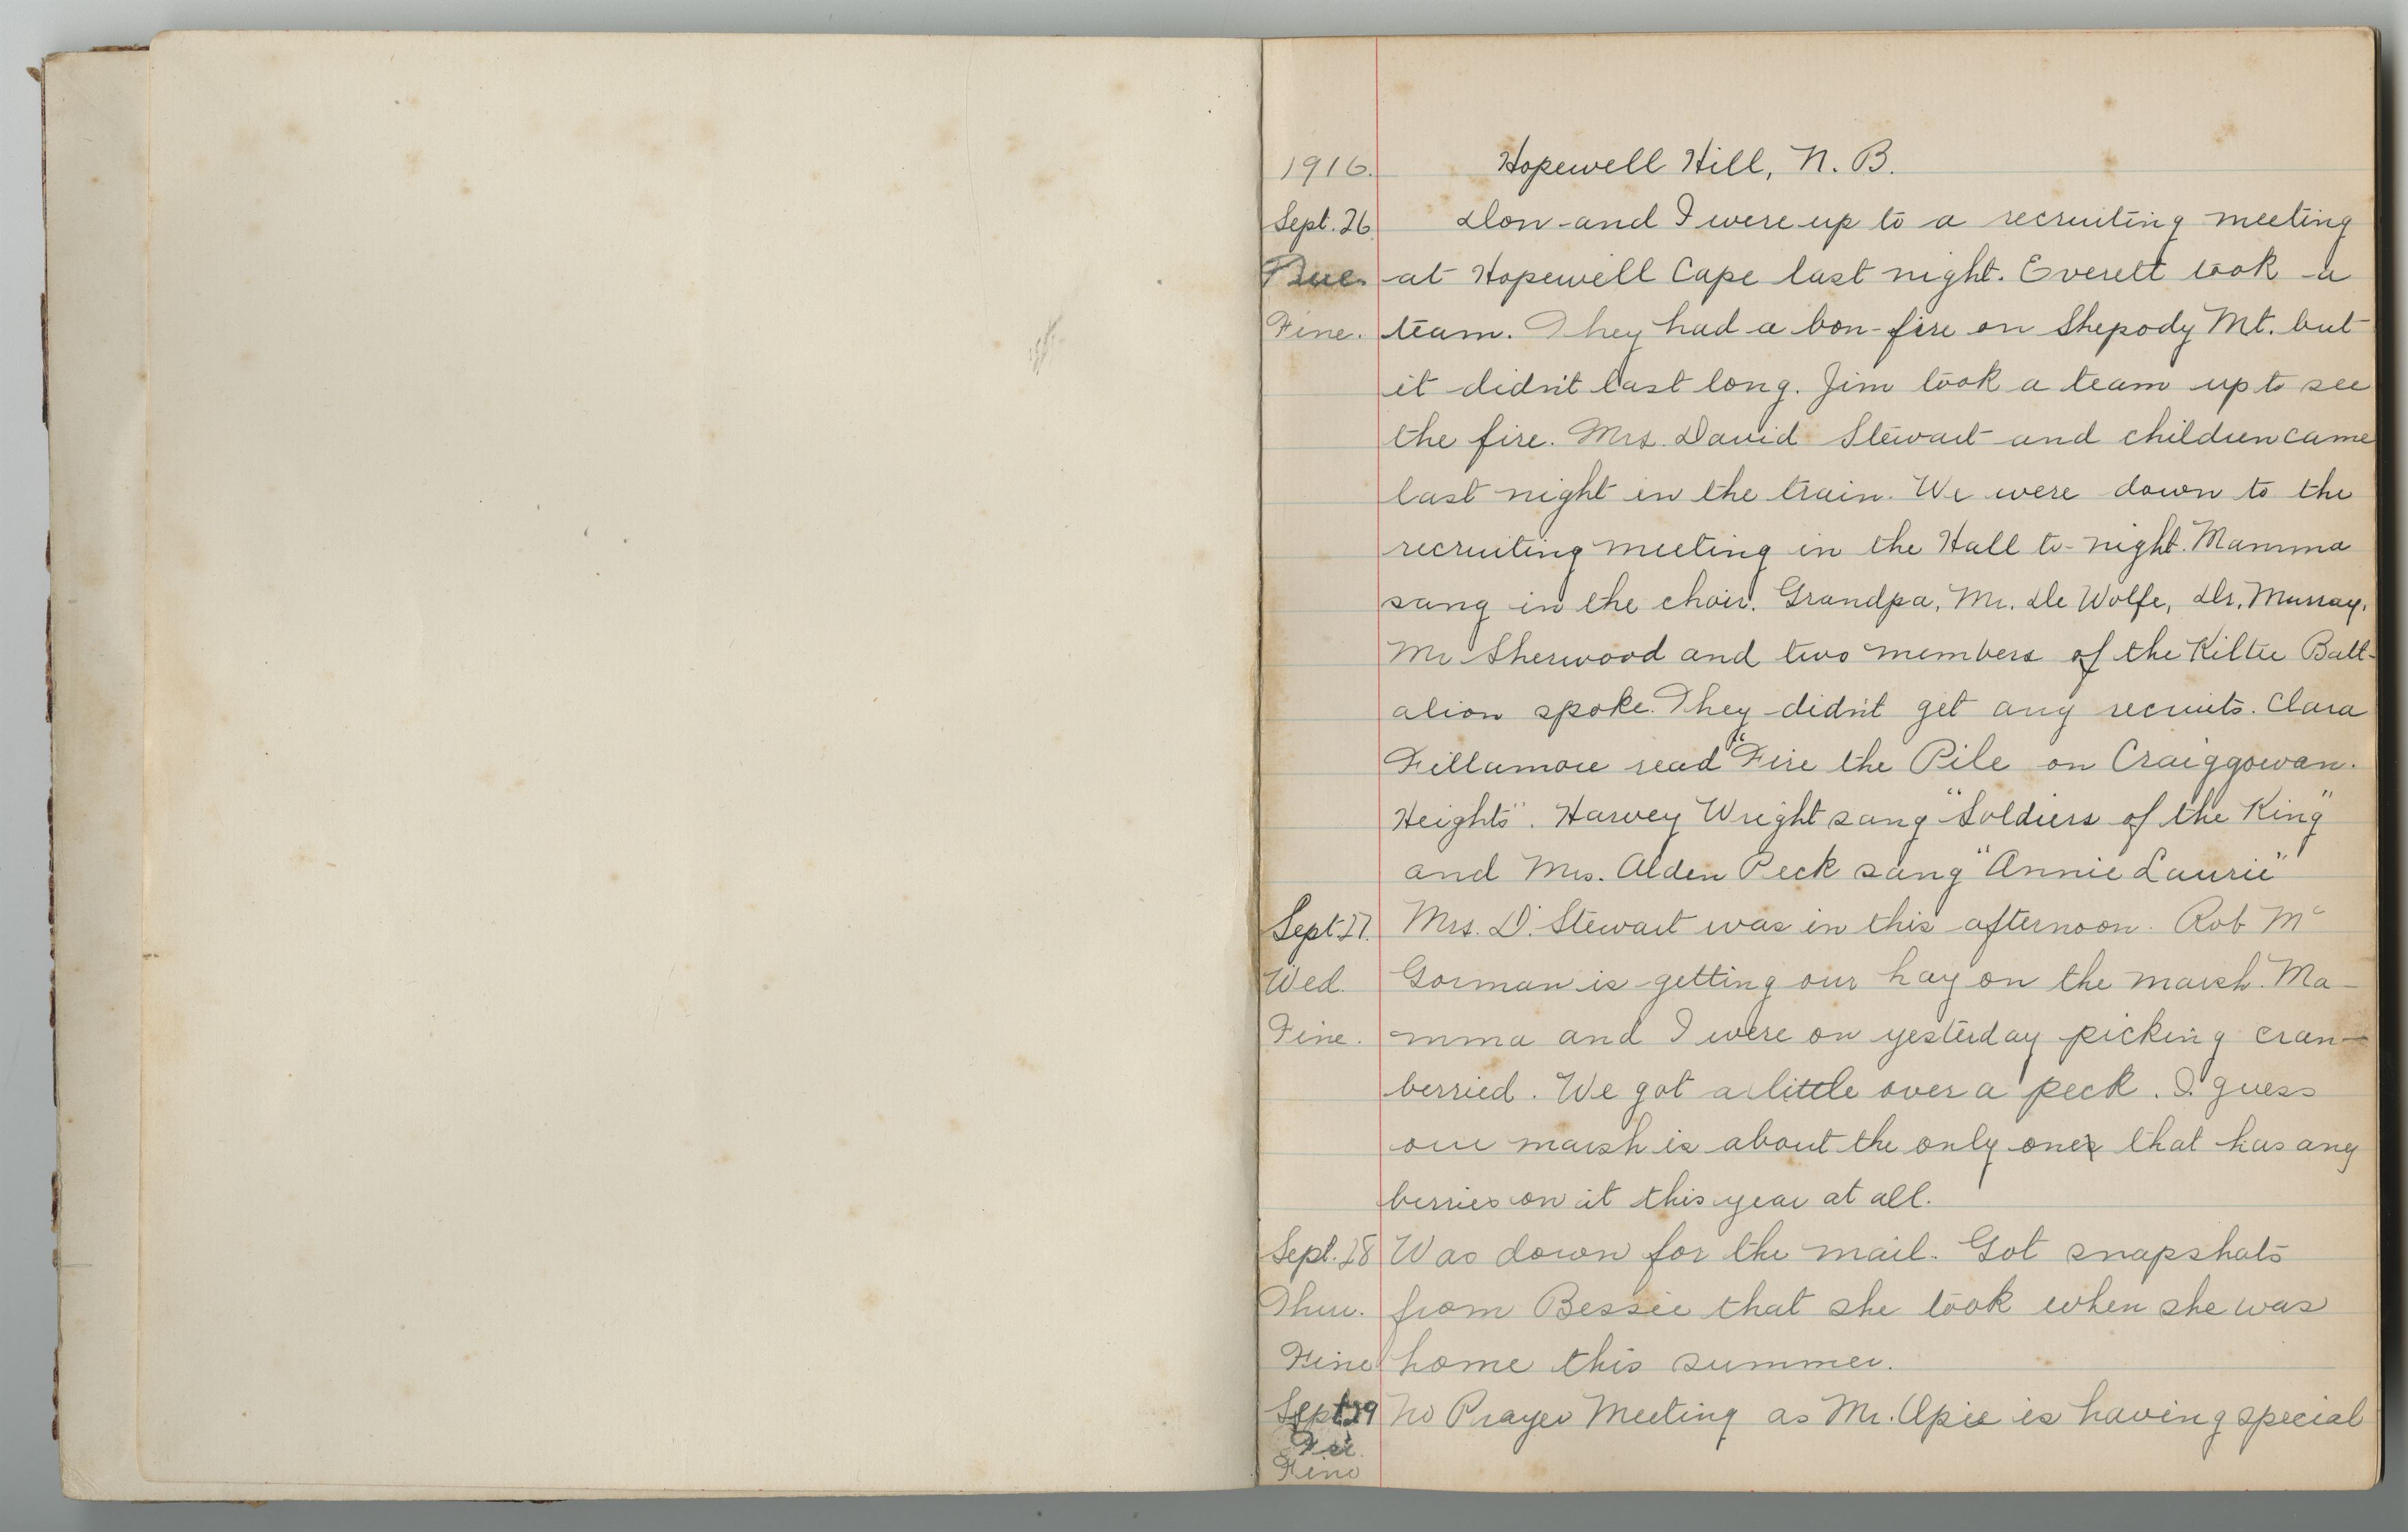 1916. Hopewell Hill, N. B.
Sept. 26 Don and I were up to a recruiting meeting
Tue. at Hopewell Cape last night. Everett took a
Fine. team. They had a bon-fire on Shepody Mt. but
it didn't last long. Jim took a team up to see
the fire. Mrs. David Stewart and children came
last night in the train. We were down to the
recruiting meeting in the Hall to-night. Mamma
sang in the choir. Grandpa, Mr. De Wolfe, Dr. Murray,
Mr Sherwood and two members of the Kiltie Batt-
alion spoke. They didn't get any recruits. Clara
Fillamore read "Fire the Pile on Craiggowan.
Heights". Harvey Wright sang "Soldiers of the King"
and Mrs. Alden Peck sang "Annie Laurie"
Sept 27. Mrs. D. Stewart was in this afternoon. Rob Mc
Wed. Gorman is getting our hay on the marsh. Ma-
Fine. mma and I were on yesterday picking cran-
berried. We got a little over a peck. I guess
our marsh is about the only ones that has any
berries on it this year at all.
Sept. 28 Was down for the mail. Got snapshats
Thur. from Bessie that she took when she was
Fine home this summer.
Sept 29 No Prayer Meeting as Mr. Opie is having special
Fri.
Fine